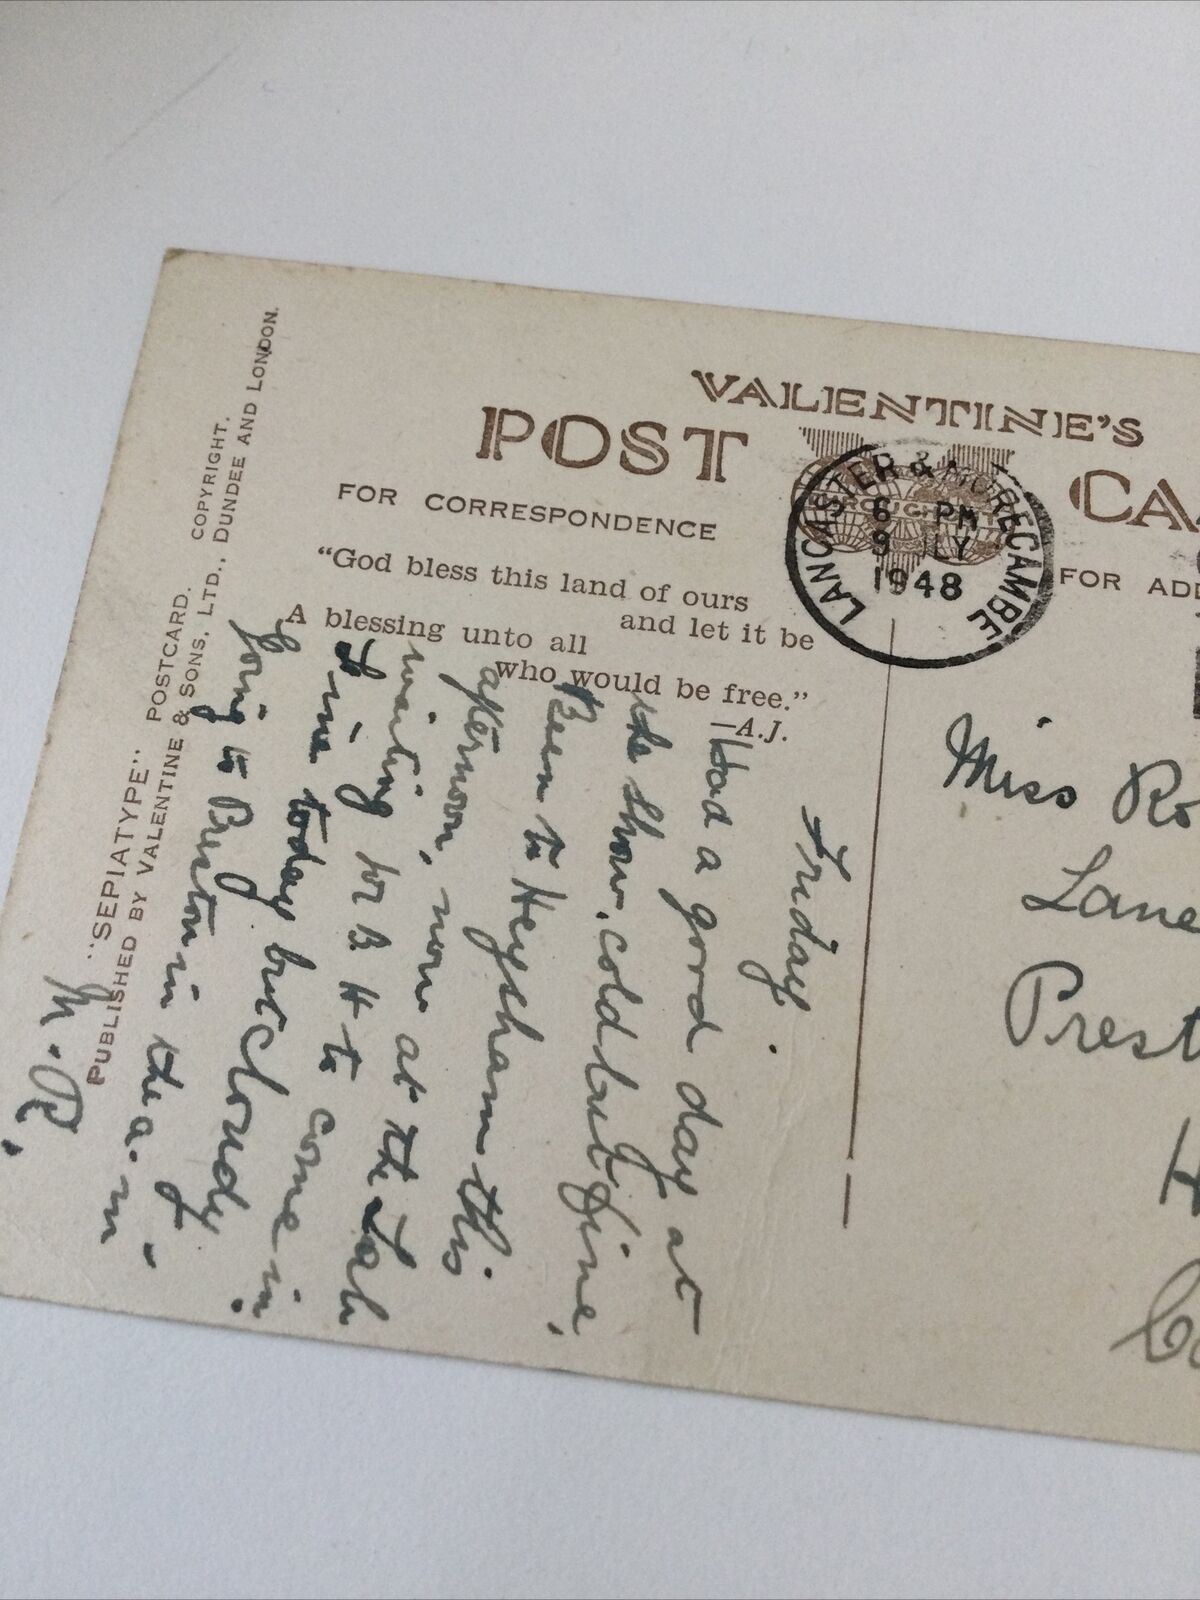 VALENTINE'S
POST CA
FOR CORRESPONDENCE
FOR ADD
"God bless this land of ours
and let it be
A blessing unto all
who would be free."
—A.J.
LANCASTER & MORECAMBE
6 PM
9 JLY
1948
"SEPIATYPE" POSTCARD. COPYRIGHT.
PUBLISHED BY VALENTINE & SONS, LTD., DUNDEE AND LONDON.
Friday.
Had a good day at
the Show, cold but fine,
Been to Heysham this
afternoon, now at the Lab
waiting for B H to come in
Fine today but cloudy.
Going to Buxton in the a.m.
M.R.
Miss Ro
Lane
Prest
H